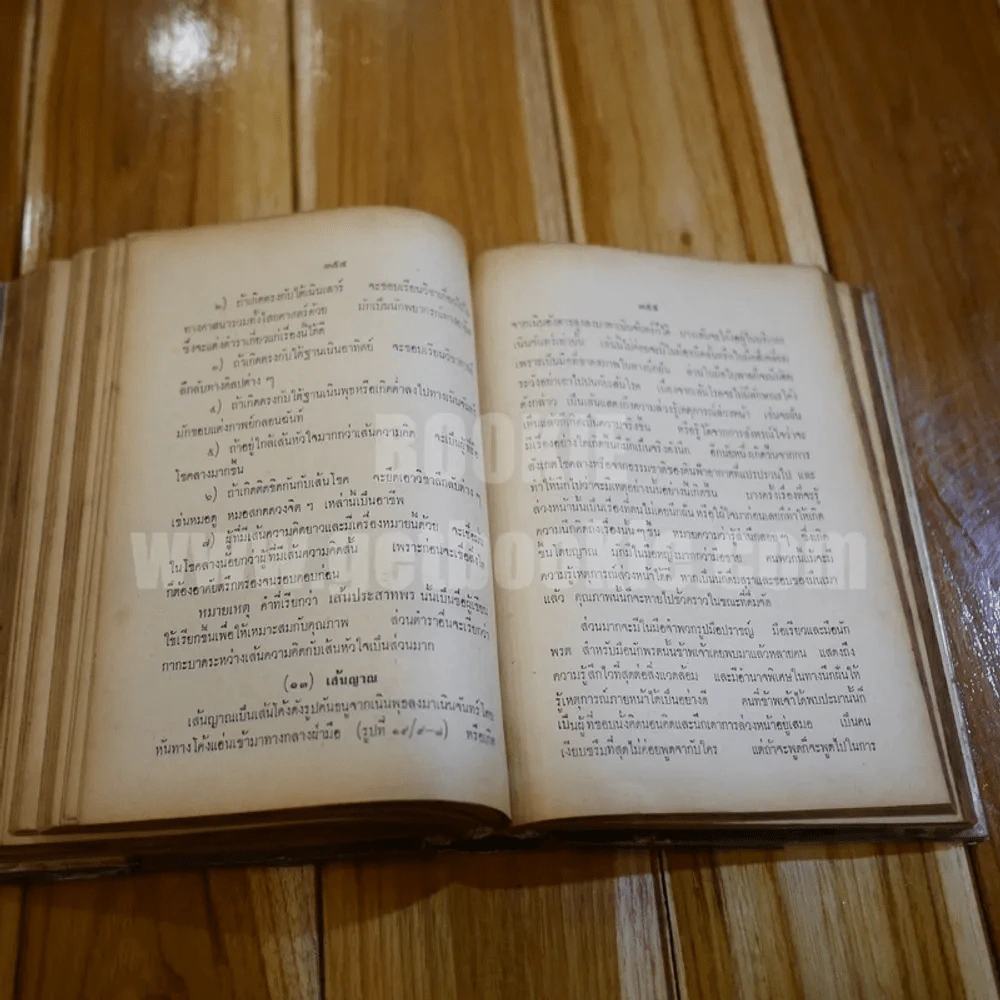 ๓๕๔
๒) ถ้าเกิดตรงกับใต้เนินเสาร์ จะชอบเรียนวิชาเกี่ยวกับ
ทางศาสนารวมทั้งไสยศาสตร์ด้วย มักเป็นนักพยากรณ์ทาง
ซึ่งจะแต่งตำราเกี่ยวแก่เรื่องนี้ได้ดี
๓) ถ้าเกิดตรงกับใต้ฐานเนินอาทิตย์ จะชอบเรียนวิชา
ลึกลับทางศิลปต่าง ๆ
๔) ถ้าเกิดตรงกับใต้เนินพุธหรือเกิดต่ำลงไปทางเนินจันทร์
มักชอบแต่งกาพย์กลอนฉันท์
๕) ถ้าอยู่ใกล้เส้นหัวใจมากกว่าเส้นความคิด จะเป็นผู้
โชคลางมากขึ้น
๖) ถ้าเกิดติดชิดกันกับเส้นโชค จะยึดเอาวิชาลึกลับต่าง ๆ
เช่นหมอดู หมอสกดดวงจิต ๆ เหล่านี้เป็นอาชีพ
๗) ผู้ที่มีเส้นความคิดยาวและมีเครื่องหมายนี้ด้วย จะเชื่อ
ในโชคลางน้อยกว่าผู้ที่มีเส้นความคิดสั้น เพราะก่อนจะเชื่อ
ก็ต้องอาศัยตรึกตรองจนรอบคอบก่อน
หมายเหตุ คำที่เรียกว่า เส้นประสาทพร นั้นเป็นชื่อผู้เขียน
ใช้เรียกขึ้นเพื่อให้เหมาะสมกับคุณภาพ ส่วนตำราอื่นจะเรียกว่า
กากะบาดระหว่างเส้นความคิดกับเส้นหัวใจเป็นส่วนมาก
(๑๓) เส้นญาณ
เส้นญาณเป็นเส้นโค้งดังรูปคันธนูจากเนินพุธลงมาเนินจันทร์โดย
หันทางโค้งแอ่นเข้ามาทางกลางฝ่ามือ (รูปที่ ๑๙/๙-๘) หรือเกิด
๓๕๕
จากเนินอังคารลงมาหาเนินจันทร์ก็ได้
เนินจันทร์เท่านั้น
ระวังอย่าเอาไปปนกับเส้นโรค
ดังกล่าว เป็นเส้นแสดงถึงความล่วงรู้เหตุการณ์ล่วงหน้า เช่นจะฝัน
เห็นแล้วก็เกิดเป็นความจริงขึ้น หรือรู้โดยจากการสังหรณ์ใจว่าจะ
มีเรื่องอย่างใดเกิดขึ้นก็มักเป็นจริงดังนึก อีกนัยหนึ่งเกิดขึ้นจากการ
สังเกตโชคลางหรือจากธรรมชาติของดินฟ้าอากาศที่แปรปรวนไป และ
ทำให้นึกไปว่าจะมีเหตุอย่างนั้นอย่างนี้เกิดขึ้น บางครั้งเรื่องที่จะรู้
ล่วงหน้านั้นเป็นเรื่องที่ตนไม่เคยนึกฝัน หรือใฝ่ใจมาก่อนเลยก็ทำให้เกิด
ความนึกคิดถึงเรื่องนั้น ๆ ขึ้น หมายความว่ารู้ล้ำนึกลอย ๆ ซึ่งเกิด
ขึ้นโดยญาณ มักมีในมือหญิงมากกว่ามือชาย คนพวกนี้แม้จะมี
ความรู้เหตุการณ์ล่วงหน้าได้ดี หากเป็นนักดื่มสุราและชอบของมึนเมา
แล้ว คุณภาพนั้นก็จะหายไปชั่วคราวในขณะที่ดื่มจัด
ส่วนมากจะมีในมือจำพวกรูปมือปราชญ์ มือเรียวและมือนัก
พรต สำหรับมือนักพรตนั้นข้าพเจ้าเคยพบมาแล้วหลายคน แสดงถึง
ความรู้สึกไวที่สุดต่อสิ่งแวดล้อม และมีอำนาจพิเศษในทางนึกฝันให้
รู้เหตุการณ์ภายหน้าได้เป็นอย่างดี คนที่ข้าพเจ้าได้พบประมานนี้ก็
เป็นผู้ที่ชอบนั่งคิดนอนคิดและนึกเดาการล่วงหน้าอยู่เสมอ เป็นคน
เงียบขรึมที่สุดไม่ค่อยพูดจากับใคร แต่ถ้าจะพูดก็จะพูดไปในการ